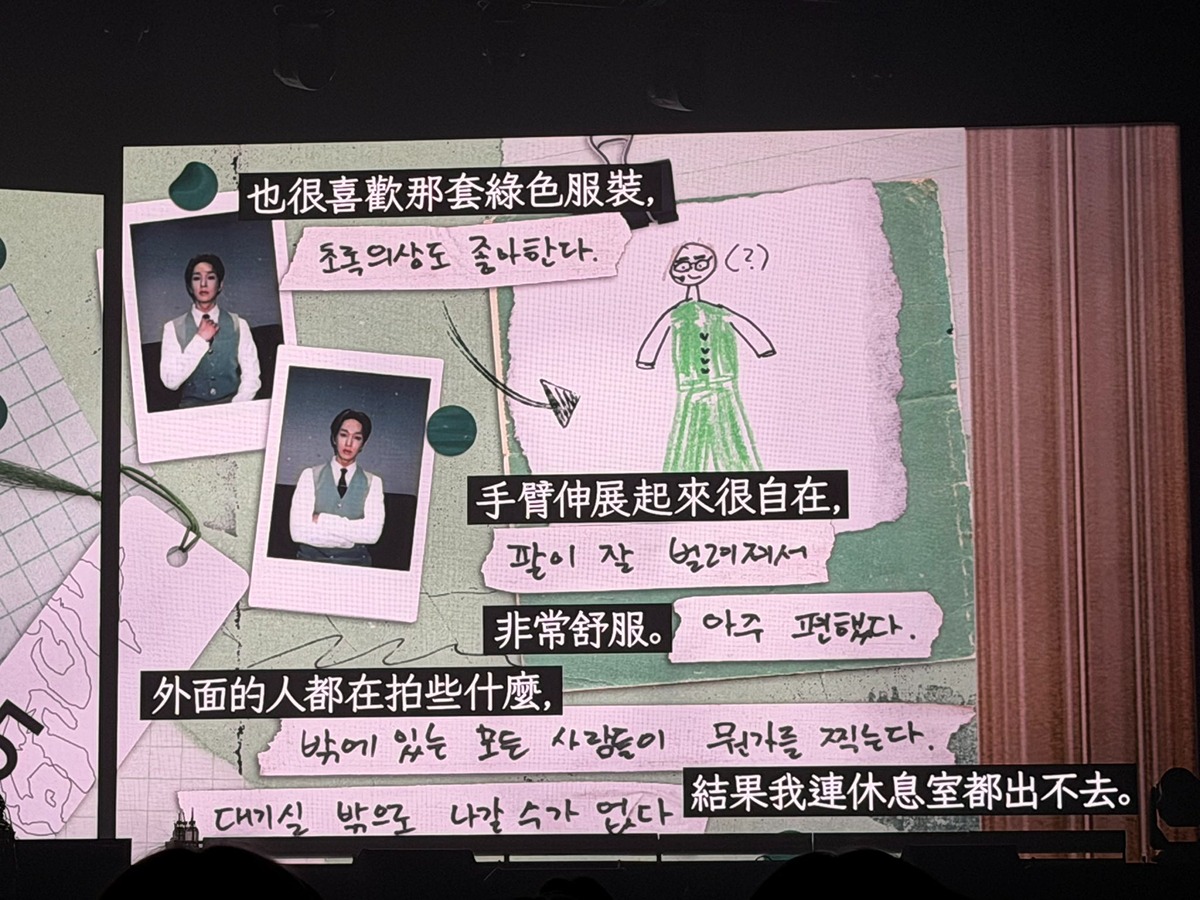 也很喜歡那套綠色服裝,
초록의상도 좋아한다.
(?)
手臂伸展起來很自在,
팔이 잘 벌려져서
非常舒服。
아주 편했다.
外面的人都在拍些什麼,
밖에 있는 모든 사람들이 뭔가를 찍는다.
結果我連休息室都出不去。
대기실 밖으로 나갈 수가 없다
5